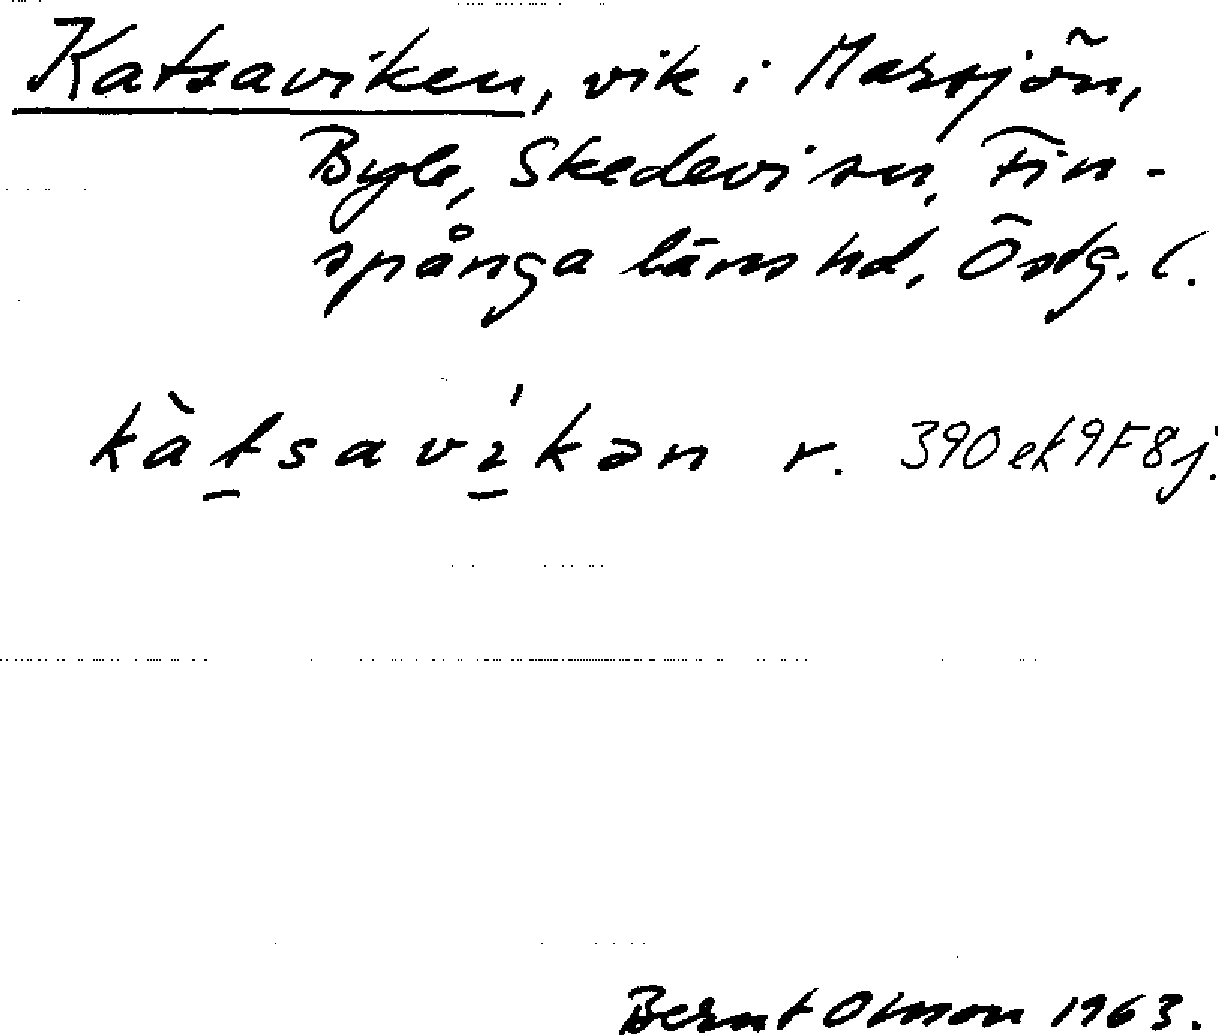 Katsaviken, vik i Marsjön,
Byle, Skedevi sn, Fin-
spånga läns hd, Östg. l.
kàtsavíkən r. 390 ek 9F8j.
Bernt Olsson 1963.